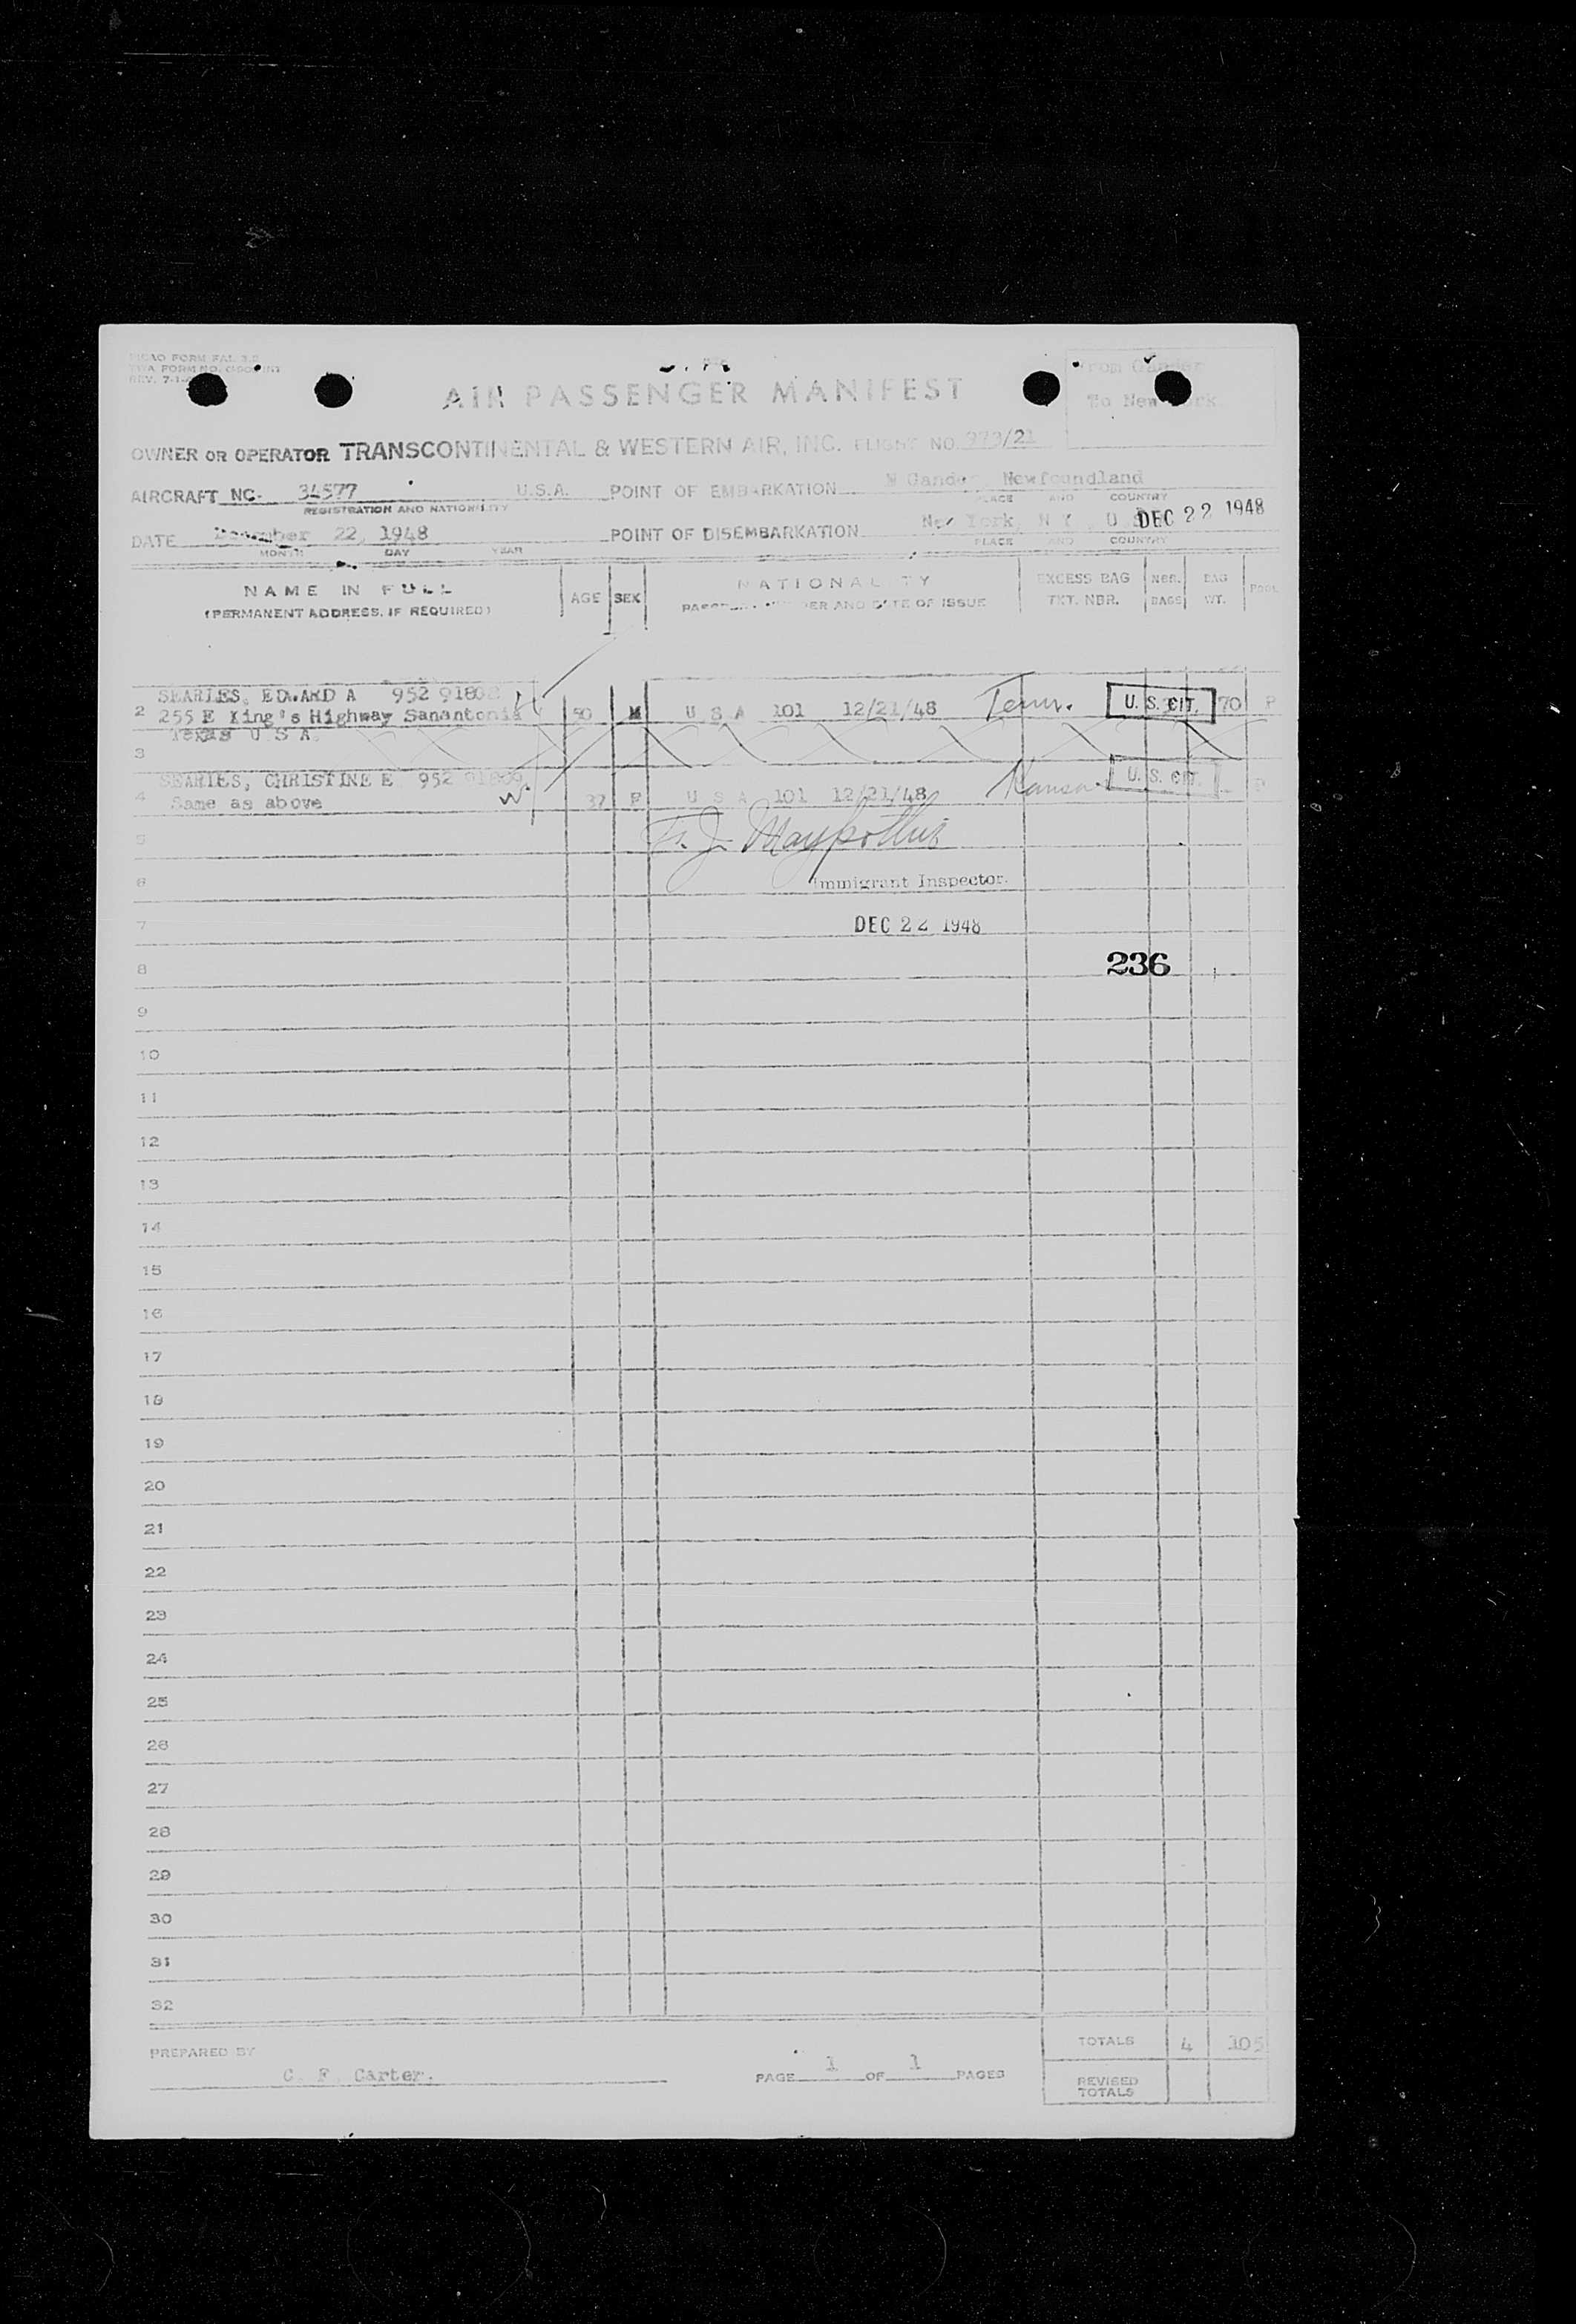 REV. 7-1-
AIR PASSENGER MANIFEST
From Gander
To New York
OWNER OR OPERATOR TRANSCONTINENTAL & WESTERN AIR, INC. FLIGHT NO. 973/21
AIRCRAFT NC- 34577 U.S.A. POINT OF EMBARKATION Gander Newfoundland
REGISTRATION AND NATIONALITY PLACE AND COUNTRY
DATE December 22, 1948 POINT OF DISEMBARKATION New York, N Y U S DEC 22 1948
MONTH DAY YEAR PLACE AND COUNTRY
NAME IN FULL
(PERMANENT ADDRESS, IF REQUIRED)
AGE SEX
NATIONALITY
PASSPORT NUMBER AND DATE OF ISSUE
EXCESS BAG
TKT. NBR.
NBR.
BAGS
BAG
WT.
POOL
SEARLES, EDWARD A 952 91808
2 255 E King's Highway Sanantonia 50 M U S A 101 12/21/48 Tenn. U.S. CIT. 70 P
Texas U S A
3
SEARLES, CHRISTINE E 952 91809
4 Same as above W. 37 F U S A 101 12/21/48 Kansas U.S. CIT. P
5
6 Immigrant Inspector.
7 DEC 22 1948
8 236
9
10
11
12
13
14
15
16
17
18
19
20
21
22
23
24
25
26
27
28
29
30
31
32
TOTALS 4 105
PREPARED BY C. F. Carter.
PAGE 1 OF 1 PAGES
REVISED
TOTALS